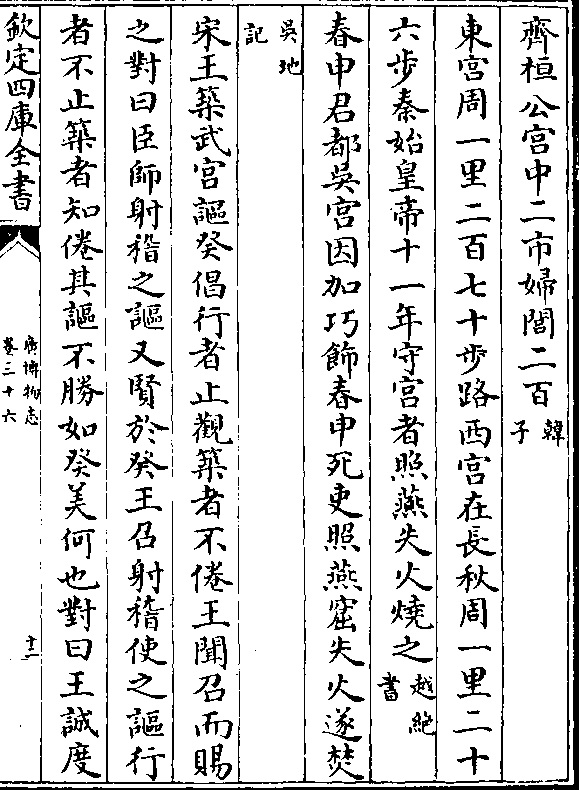 齊桓公宫中二市婦閭二百韓子
東宫周一里二百七十歩路西宫在長秋周一里二十
六歩秦始皇帝十一年守宫者照燕失火燒之越絶書
春申君都吳宫因加巧飾春申死吏照燕窟失火遂焚
吳地記
宋王築武宫謳癸倡行者止觀築者不倦王聞召而賜
之對曰臣師射稽之謳又賢於癸王召射稽使之謳行
者不止築者知倦其謳不勝如癸美何也對曰王誠度
欽定四庫全書
廣博物志
卷三十六
十二